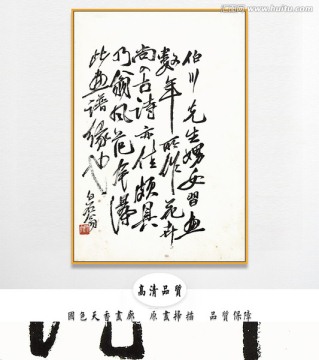 www.huitu.com
伯川先生嬌女習畫
數年所作花卉
尚
古詩亦佳頗具
乃翁風范今得
此畫譜緣也
白石翁
高清品質
國色天香畫廊 原畫掃描 品質保障